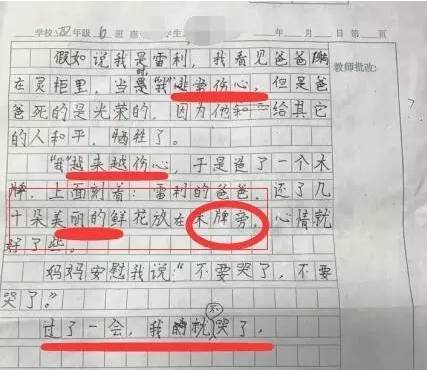 学校 四 年级 6 班 座 学生 年 月 日 第 页
假如说我是雷利，我看见爸爸躺
教师批改：
在灵柜里，当时"我"非常伤心，但是爸
爸死的是光荣的，因为他和一给其它
的人和平，牺牲了。
"我"越来越伤心，于是造了一个木
牌，上面刻着：雷利的爸爸，还了几
十朵美丽的鲜花放在木牌旁，心情就
好了些。
妈妈安慰我说："不要哭了，不要
哭了。"
过了一会，我的就不哭了，